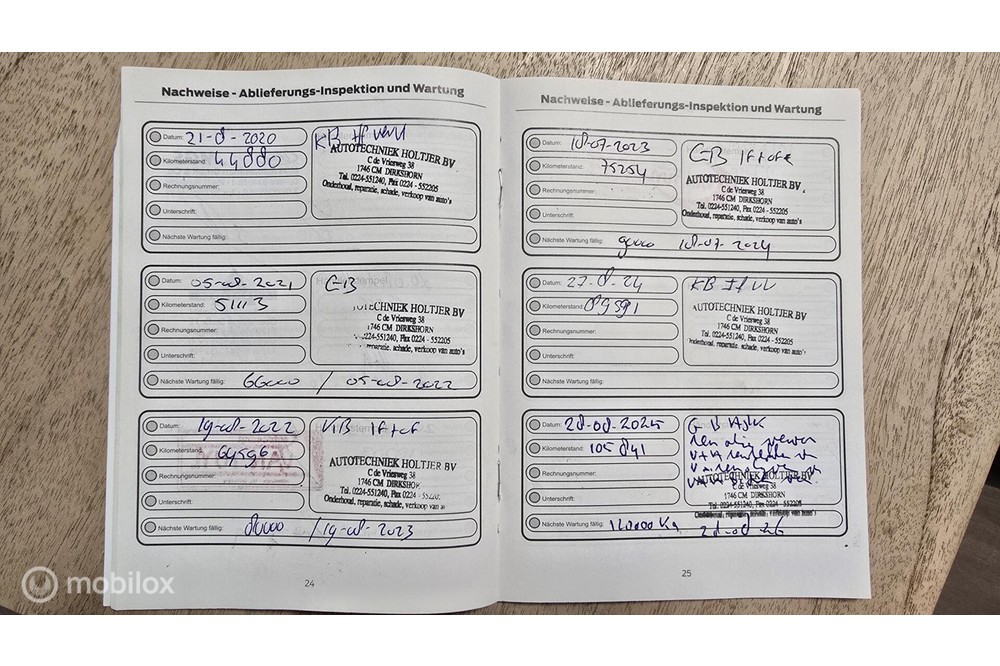 Nachweise - Ablieferungs-Inspektion und Wartung
Datum: 21-8-2020
Kilometerstand: 44880
Rechnungsnummer:
Unterschrift:
Nächste Wartung fällig:
KB
AUTOTECHNIEK HOLTJER BV
C de Vriesweg 38
1746 CM DIRKSHORN
Tel. 0224-551240, Fax 0224 - 552205
Onderhoud, reparatie, schade, verkoop van auto's
Datum: 05-08-2021
Kilometerstand: 51113
Rechnungsnummer:
Unterschrift:
Nächste Wartung fällig: 66000 / 05-08-2022
GB
AUTOTECHNIEK HOLTJER BV
C de Vriesweg 38
1746 CM DIRKSHORN
0224-551240, Fax 0224 - 552205
reparatie, schade, verkoop van auto's
Datum: 19-08-2022
Kilometerstand: 64596
Rechnungsnummer:
Unterschrift:
Nächste Wartung fällig: 80000 / 19-08-2023
KB IF+OF
AUTOTECHNIEK HOLTJER BV
C de Vriesweg 38
1746 CM DIRKSHORN
Tel. 0224-551240, Fax 0224 - 552205
Onderhoud, reparatie, schade, verkoop van
24
Nachweise - Ablieferungs-Inspektion und Wartung
Datum: 18-07-2023
Kilometerstand: 75254
Rechnungsnummer:
Unterschrift:
Nächste Wartung fällig: 90000 18-07-2024
GB IF+OF
AUTOTECHNIEK HOLTJER BV
C de Vriesweg 38
1746 CM DIRKSHORN
Tel. 0224-551240, Fax 0224 - 552205
Onderhoud, reparatie, schade, verkoop van auto's
Datum: 27-8-24
Kilometerstand: 89591
Rechnungsnummer:
Unterschrift:
Nächste Wartung fällig:
KB
AUTOTECHNIEK HOLTJER BV
C de Vriesweg 38
1746 CM DIRKSHORN
Tel. 0224-551240, Fax 0224 - 552205
Onderhoud, reparatie, schade, verkoop van auto's
Datum: 28-08-2025
Kilometerstand: 105841
Rechnungsnummer:
Unterschrift:
Nächste Wartung fällig: 120000 Km 28-08-26
GB
AUTOTECHNIEK HOLTJER BV
C de Vriesweg 38
1746 CM DIRKSHORN
Tel. 0224-551240, Fax 0224 - 552205
Onderhoud, reparatie, schade, verkoop van auto's
25
mobilox